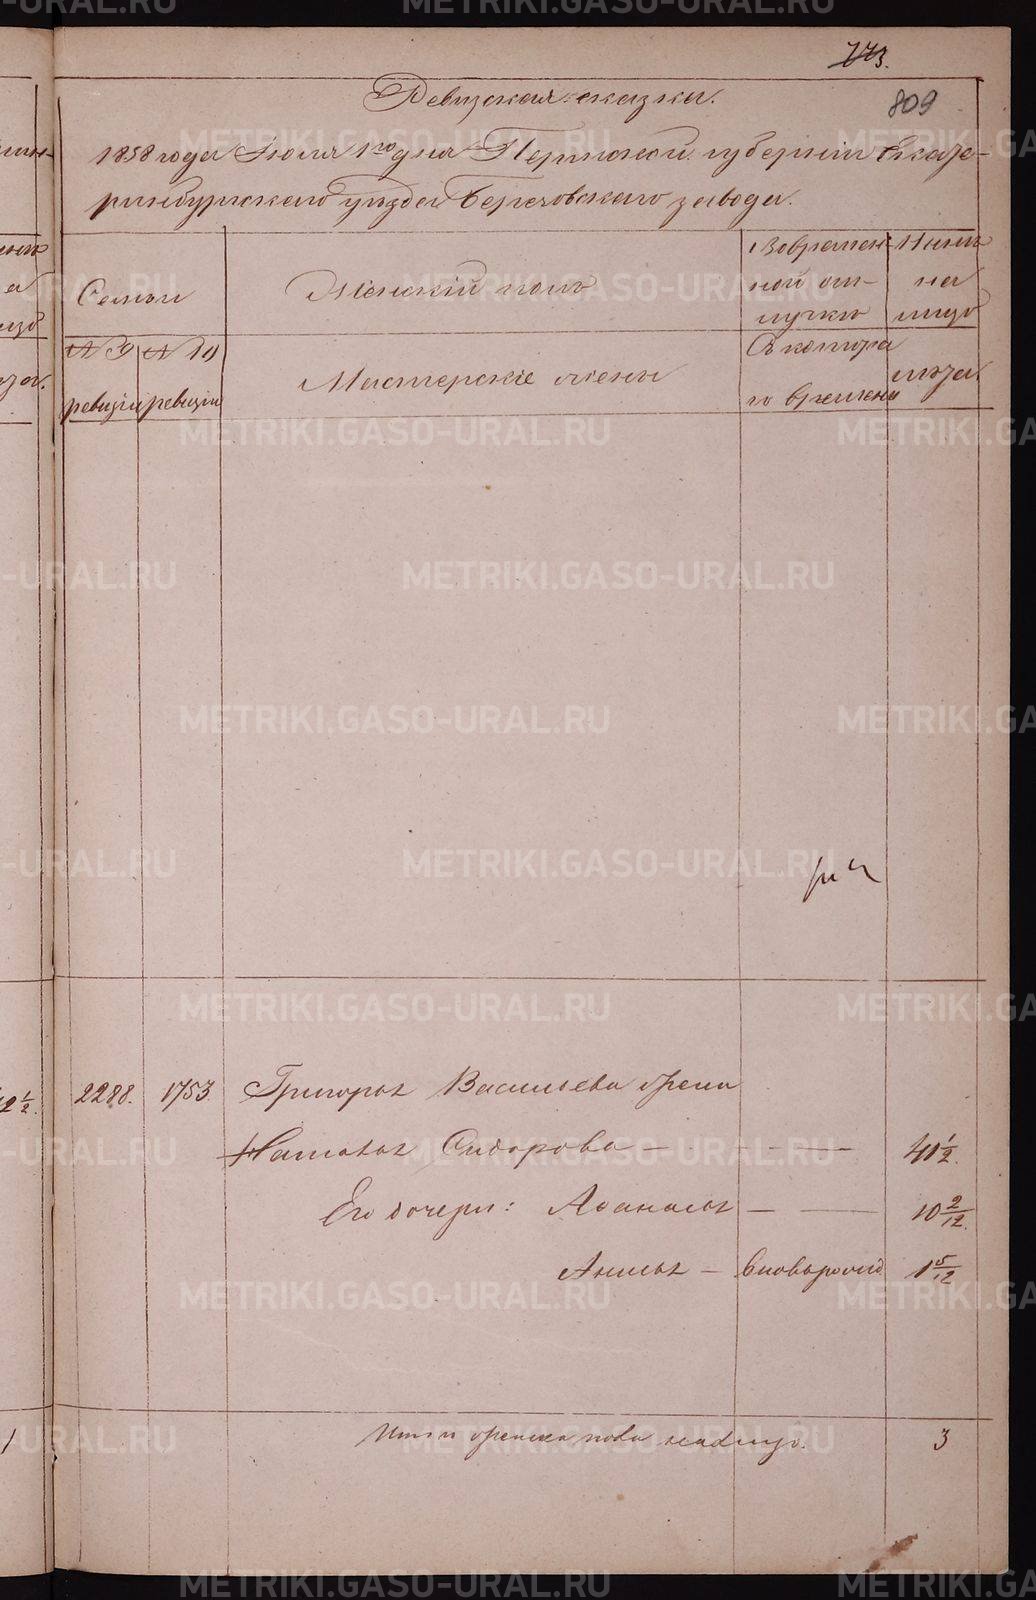 773.
809
Ревизская сказка.
1858 года Июля 1го дня Пермской губернiи Екате-
ринбургскаго уѣзда Березовскаго завода.
Семьи
Женскiй полъ
Вовремен-
ной от-
лучкѣ
Нынѣ
на
лицо
№ 9 ревизiи
№ 10 ревизiи
Мастерскiе жены
Съ котора
го времени
лѣта.
2288. 1753. Григорья Васильева жена
Наталья Сидорова — — — 41 1/2.
Его дочери: Афанасья — — 10 2/12.
Анисья — вновьрожд 1 5/12
Итого женска пола налицо. 3
METRIKI.GASO-URAL.RU